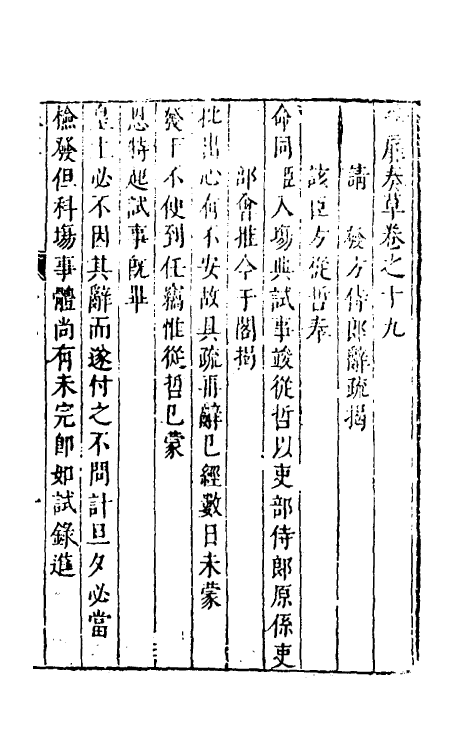 扉奏草卷之十九
請 發方侍郎辭疏揭
該臣方從哲奉
命同臣入場典試事竣從哲以吏部侍郎原係吏
部會推今于閣揭
批出心有不安故具疏再辭已經數日未蒙
發下不便到任竊惟從哲已蒙
恩特延試事旣畢
皇上必不因其辭而遂付之不問計旦夕必當
檢發但科場事體尚有未完卽如試錄進